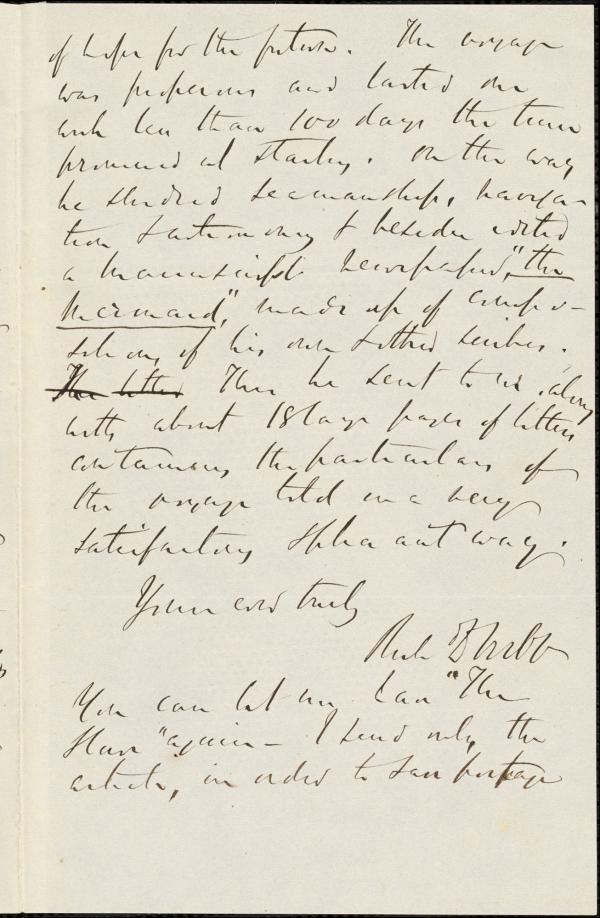 of hope for the future. The voyage
was prosperous and lasted one
week less than 100 days the time
promised at starting. On the way
he studied seamanship, naviga-
tion & astronomy & besides edited
a manuscript newspaper, "the
Mermaid", made up of compo-
sitions of his own & others writing.
The letter This he sent to us, along
with about 18 large pages of letters
containing the particulars of
the voyage told in a very
satisfactory way.
Yours ever truly
You can let me have "The
" again - I send only the
article, in order to save postage